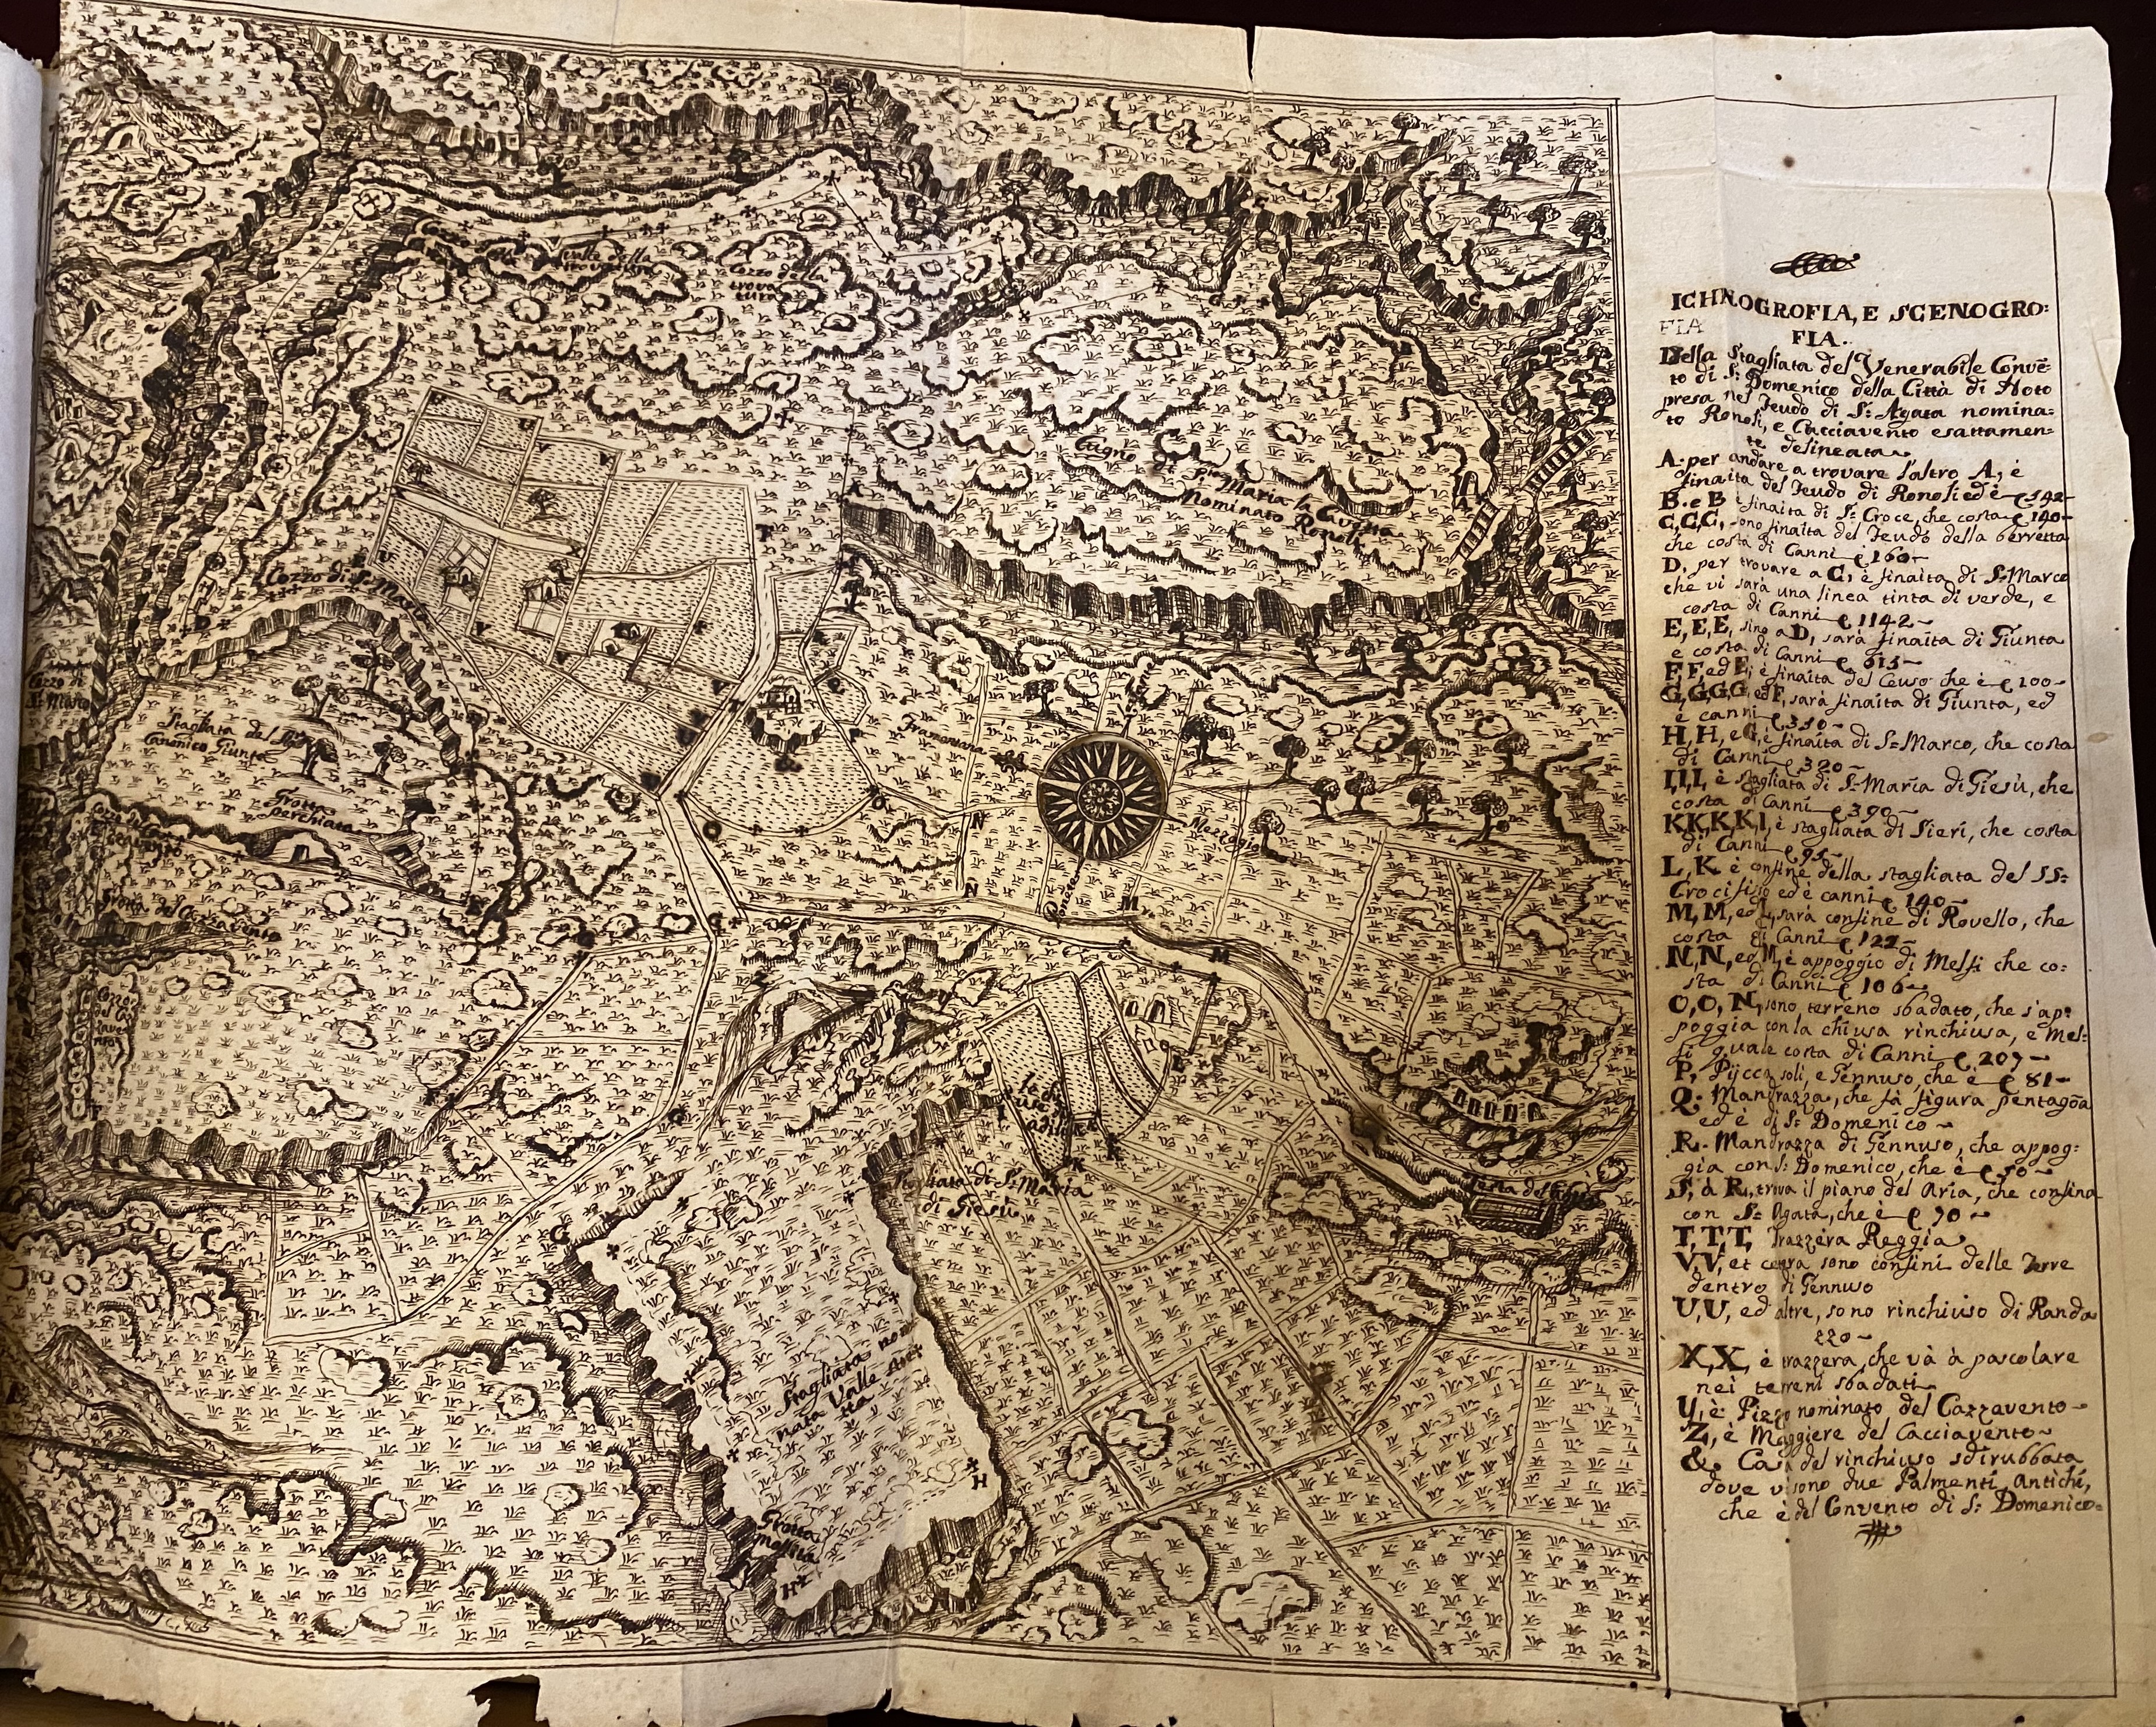 ICHNOGROFIA, E SCENOGRO:
FIA
FIA.
Della Stagliata del Venerabile Convē
to di S: Domenico della Città di Noto
presa nel Feudo di S: Agata nomina:
to Ronoli, e Cacciavento esattamen:
te delineata
A. per andare a trovare l'altro A, è
finaita del Feudo di Ronoli ed è C 542
B. e B è finaita di S: Croce, che costa C 140
C, C, C, sono finaita del Feudo della berretta
che costa di Canni C 160
D, per trovare a C, è finaita di S: Marco
che vi sarà una linea tinta di verde, e
costa di Canni C 1142
E, E, E, sino a D, sarà finaita di Giunta
e costa di Canni C 613
F, F, ed E, è finaita del Ceuso che è C 100
G, G, G, G, ed F, sarà finaita di Giunta, ed
è canni C 330
H, H, e G, è finaita di S: Marco, che costa
di Canni C 320
I, I, I, è stagliata di S: Maria di Giesù, che
costa di Canni C 390
K, K, K, K, I, è stagliata di Sieri, che costa
di Canni C 95
L, K è confine della stagliata del SS:
Crocifisso ed è canni C 140
M, M, ed L, sarà confine di Rovello, che
costa di Canni C 122
N, N, ed M, è appoggio di Messi che co:
sta di Canni C 106
O, O, N, sono terreno sbadato, che s'ap:
poggia con la chiusa rinchiusa, e Mes:
si quale costa di Canni C 207
P, Piccasoli, e Gennuso, che è C 81
Q. Mandrazza, che fà figura pentagōa
ed è di S: Domenico
R. Mandrazza di Gennuso, che appog:
gia con S: Domenico, che è C 50
S, à R, trova il piano del Aria, che confina
con S: Agata, che è C 70
T, T, T, Trazzera Reggia
V, V, et cetera sono confini delle Terre
dentro di Gennuso
U, U, ed altre, sono rinchiuso di Randa
zzo
X, X, è trazzera, che và à pascolare
nei terreni sbadati
Y, è Pizzo nominato del Cazzavento
Z, è Maggiere del Cacciavento
&. Casa del rinchiuso sdirubbata
dove vi sono due Palmenti Antichi,
che è del Convento di S: Domenico
Valle della
trovatura
Cozzo della
trova
tura
Cugno di S:
Maria la Cavetta
Nominato Ronoli
Cozzo di S: Marco
Cozzo di
S: Marco
Stagliata del
Canonico Giunta
Grotta
perchiata
Tramontana
Mezzogio
Ponente
Stagliata di S: Maria
di Giesù
Stagliata no
nata Valle
Grotta